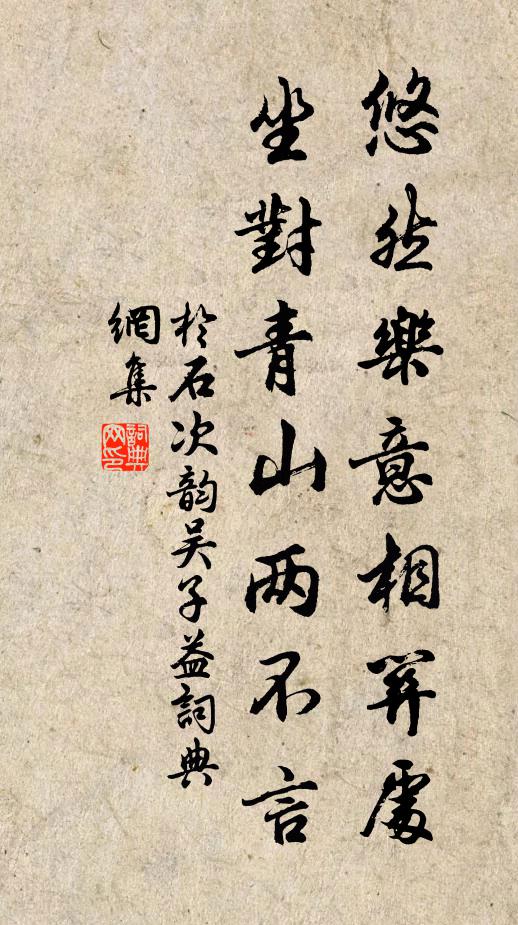 悠然樂意相關處
坐對青山两不言
於石次韵吴子益詞典
網集
詞典
网印